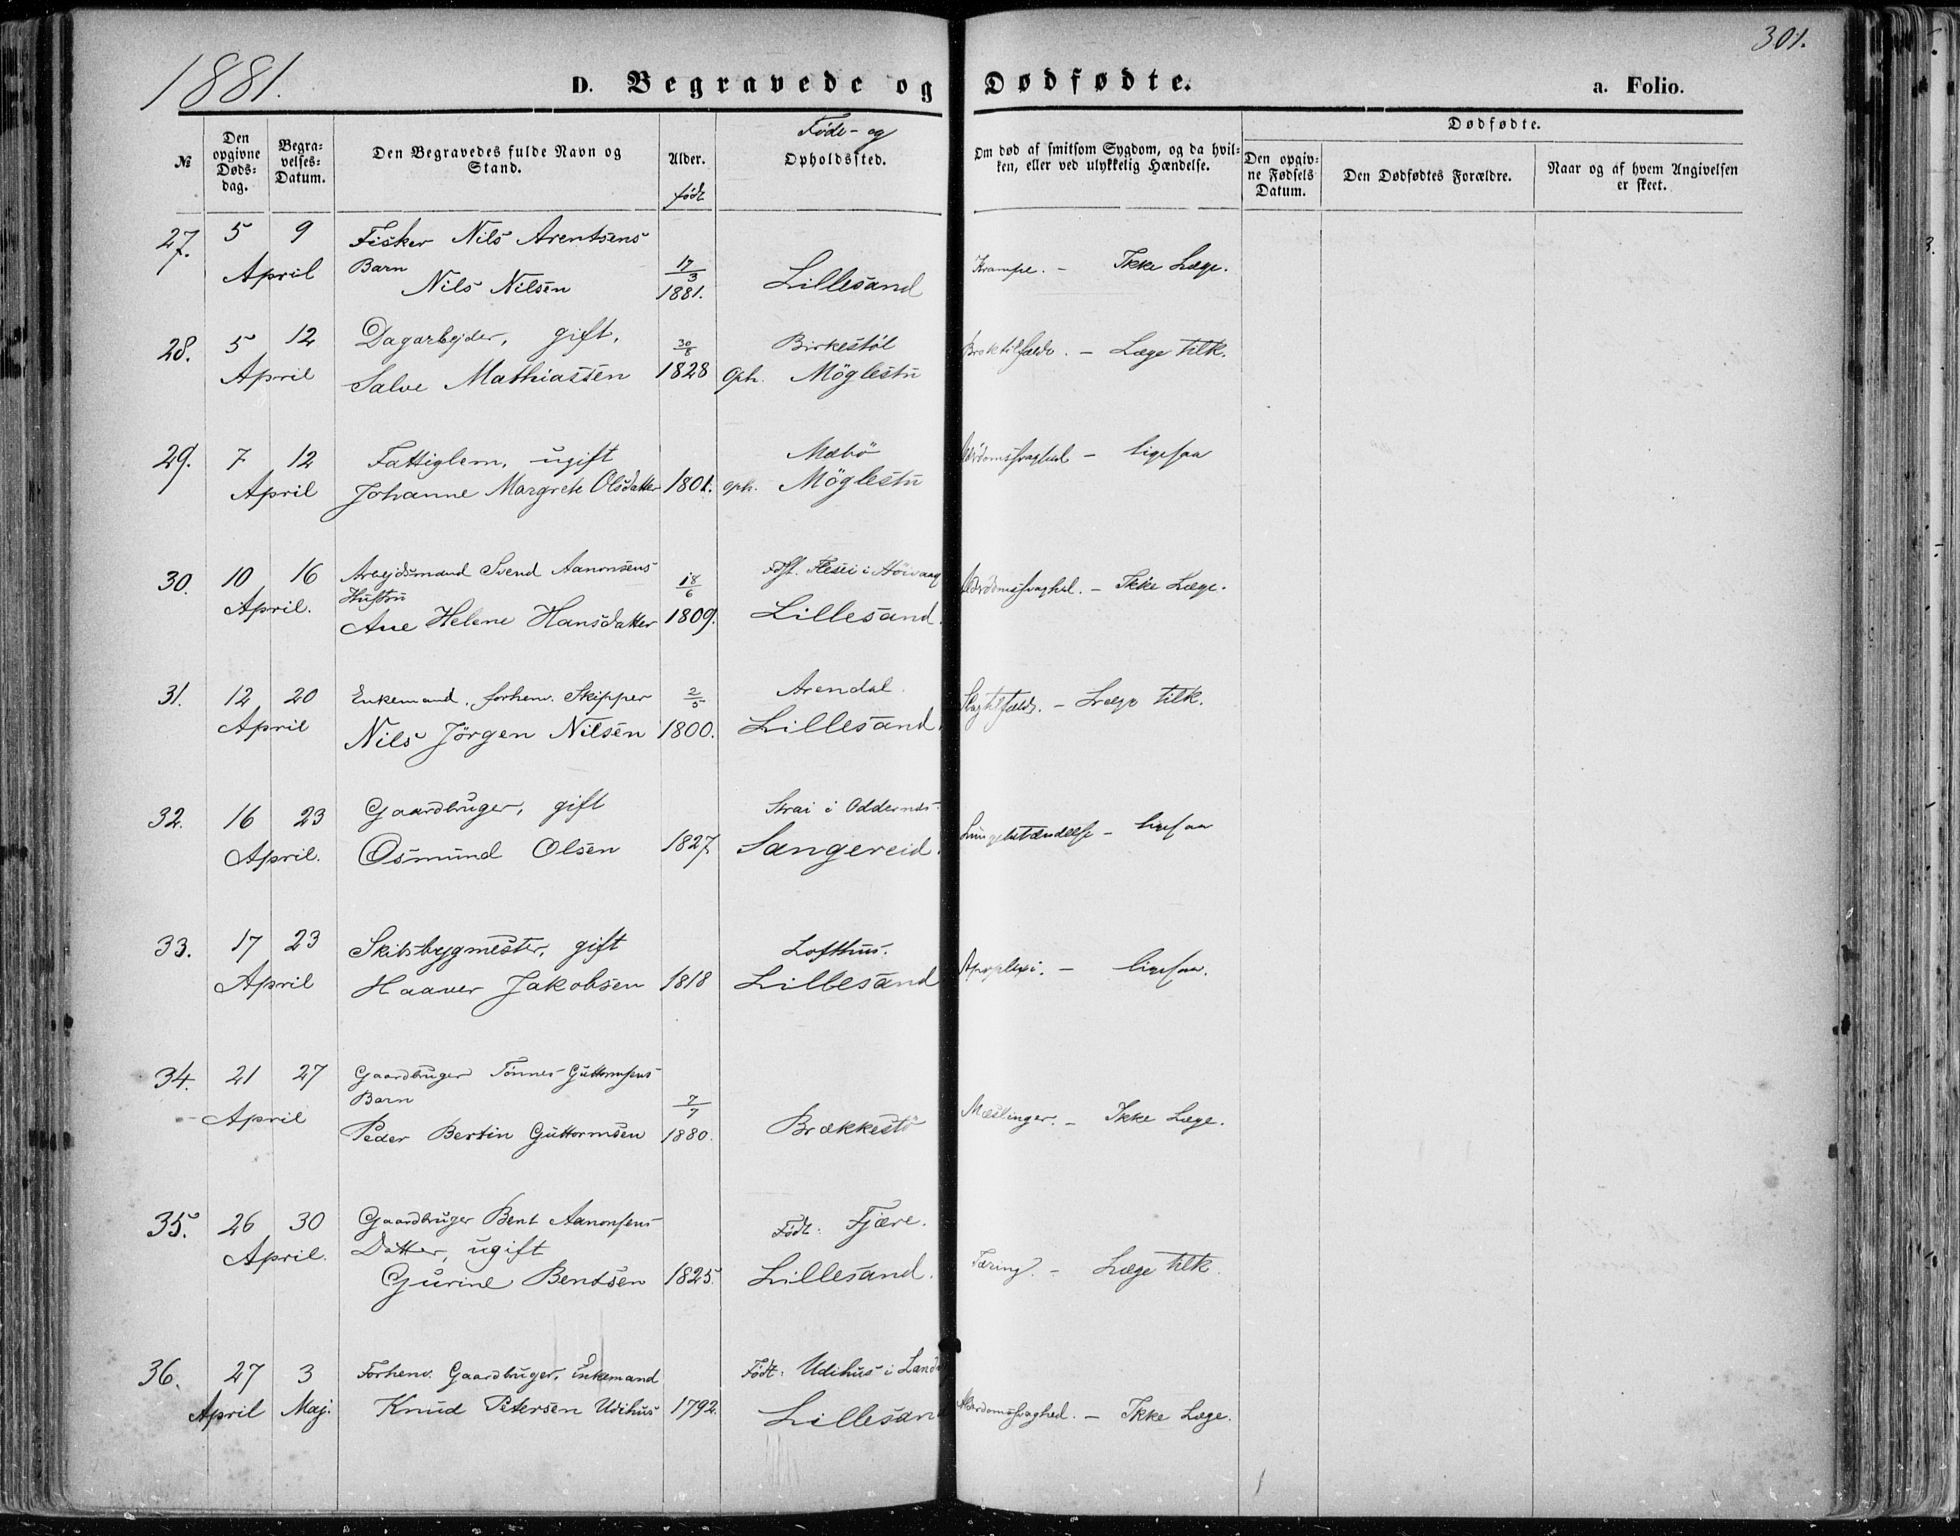 1881.
301.
D. Begravede og Dødfødte.
a. Folio.
№
Den opgivne Døds-dag.
Begra-velses-Datum.
Den Begravedes fulde Navn og Stand.
Alder.
født
Føde- og
Opholdssted.
Om død af smitsom Sygdom, og da hvil-
ken, eller ved ulykkelig Hændelse.
Dødfødte.
Den opgiv-
ne Fødsels
Datum.
Den Dødfødtes Forældre.
Naar og af hvem Angivelsen
er skeet.
27. 5 9 Fisker Nils Arentsens
April Barn 17/3 Krampe. – Ikke Læge.
Nils Nilsen 1881. Lillesand
28. 5 12 Dagarbejder, gift, 30/8 Birkestøl Broktilfælde. – Læge tilk.
April Salve Mathiassen 1828 Oph. Möglestu
29. 7 12 Fattiglem, ugift Mæbö Alderdomssvaghed – ligesaa
April Johanne Margrete Olsdatter 1801. Oph. Möglestu
30. 10 16 Arbejdsmand Svend Aanonsens 18/6 i Höivaag Alderdomssvaghed. – Ikke Læge.
April. Hustru
Ane Helene Hansdatter 1809. Lillesand.
31. 12 20 Enkemand, forhenv. Skipper 2/5 Arendal. Slagtilfælde. – Læge tilk.
April Nils Jörgen Nilsen 1800. Lillesand.
32. 16 23 Gaardbruger, gift Strai i Oddernæs Lungebetændelse – ligesaa
April. Osmund Olsen 1827. Sangereid.
33. 17 23 Skibsbygmester, gift Lofthus. Apoplexi. – ligesaa.
April Haaver Jakobsen 1818 Lillesand
34. 21 27 Gaardbruger Tönnes Guttormsens
April Barn 7/7 Mæslinger. – Ikke Læge.
Peder Bertin Guttormsen 1880. Brækkestö
35. 26 30 Gaardbruger Bent Aanonsens Født: Fjære.
April. Datter, ugift
Gurine Bentsen 1825. Lillesand. Tæring. – Læge tilk.
36. 27 3 Forhenv. Gaardbruger, Enkemand Født: Udihus i Landv
April Maj. Knud Petersen Udihus 1792. Lillesand Alderdomssvaghed. – Ikke Læge.